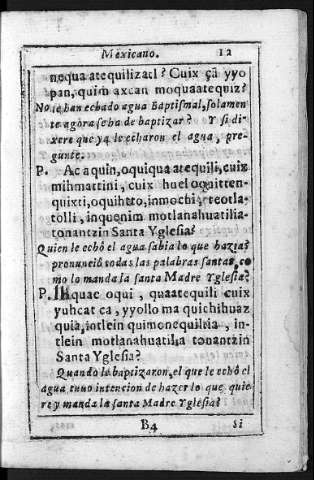 Mexicano. 12
nequa atequilizatl? Cuix çã yyo
pan, quim axcan moquaatequiz?
No te han echado agua Baptismal, solamen
te agora se ha de baptizar? Y si di-
xere que ya le echaron el agua, pre-
gunte.
P. Ac aquin, oquiqua atequili, cuix
mihmattini, cuix huel oquitten-
quixti, oquihtto, inmochi, teotla-
tolli, inquenim motlanahuatilia
tonantzin Santa Yglesia?
Quien le echó el agua sabia lo que hazia?
pronunciò todas las palabras santas, co
mo lo manda la santa Madre Yglesia?
P. Ihquac oqui, quaatequili cuix
yuhcat ca, yyollo ma quichihuaz
quia, intlein quimonequiltia, in-
tlein motlanahuatilia tonantzin
Santa Yglesia?
Quando la baptizaron, el que le echó el
agua tuuo intencion de hazer lo que quie
re y manda la santa Madre Yglesia?
B4 Si